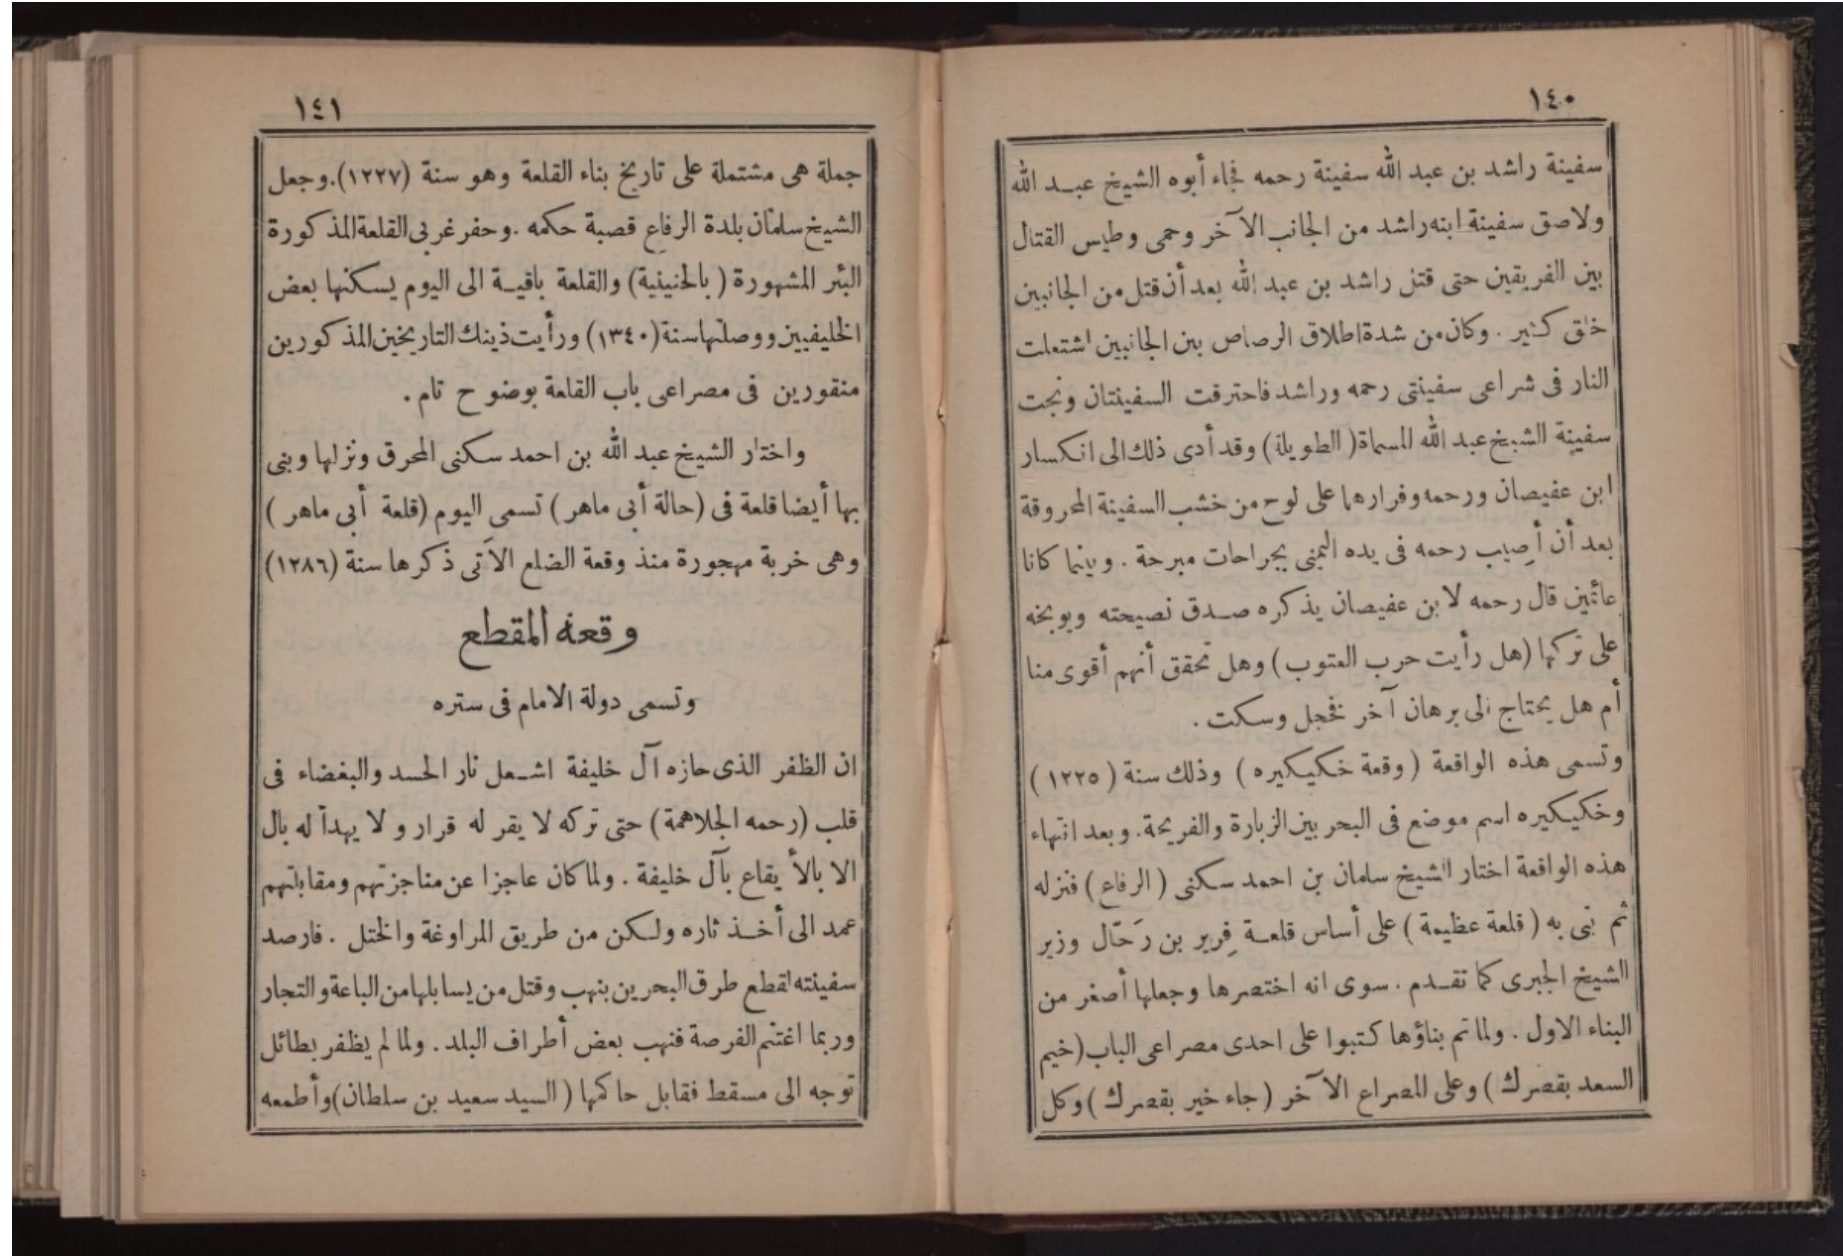 ١٤٠
سفينة راشد بن عبد الله سفينة رحمه فجاء أبوه الشيخ عبد الله
ولاصق سفينة ابنه راشد من الجانب الآخر وحمى وطيس القتال
بين الفريقين حتى قتل راشد بن عبد الله بعد أن قتل من الجانبين
خلق كثير . وكان من شدة اطلاق الرصاص بين الجانبين اشتعلت
النار فى شراعى سفينتى رحمه وراشد فاحترقت السفينتان ونجت
سفينة الشيخ عبد الله المسماة ( الطويلة ) وقد أدى ذلك الى انكسار
ابن عفيصان ورحمه وفرارهما على لوح من خشب السفينة المحروقة
بعد أن أُصيب رحمه فى يده اليمنى بجراحات مبرحة . وبينما كانا
عائمين قال رحمه لابن عفيصان يذكره صدق نصيحته ويوبخه
على تركها (هل رأيت حرب العتوب) وهل تحقق أنهم أقوى منا
أم هل يحتاج الى برهان آخر فخجل وسكت .
وتسمى هذه الواقعة ( وقعة خكيكيره ) وذلك سنة ( ١٢٢٥ )
وخكيكيره اسم موضع فى البحر بين الزبارة والفريحة. وبعد انتهاء
هذه الواقعة اختار الشيخ سلمان بن احمد سكنى ( الرفاع ) فنزله
ثم بنى به ( قلعة عظيمة ) على أساس قلعة فِرير بن رَحّال وزير
الشيخ الجبرى كما تقدم . سوى انه اختصرها وجعلها أصغر من
البناء الاول . ولما تم بناؤها كتبوا على احدى مصراعى الباب (خيم
السعد بقصرك ) وعلى المصراع الآخر ( جاء خير بقصرك ) وكل
١٤١
جملة هى مشتملة على تاريخ بناء القلعة وهو سنة (١٢٢٧).وجعل
الشيخ سلمان بلدة الرفاع قصبة حكمه . وحفر غربى القلعة المذكورة
البئر المشهورة ( بالحنينية) والقلعة باقية الى اليوم يسكنها بعض
الخليفيين ووصلتها سنة (١٣٤٠) ورأيت ذينك التاريخين المذكورين
منقورين فى مصراعى باب القلعة بوضوح تام .
واختار الشيخ عبد الله بن احمد سكنى المحرق ونزلها وبنى
بها أيضا قلعة فى (حالة أبى ماهر ) تسمى اليوم (قلعة أبى ماهر )
وهى خربة مهجورة منذ وقعة الضلع الآتى ذكرها سنة (١٢٨٦)
وقعة المقطع
وتسمى دولة الامام فى ستره
ان الظفر الذى حازه آل خليفة اشعل نار الحسد والبغضاء فى
قلب (رحمه الجلاهمة) حتى تركه لا يقر له قرار ولا يهدأ له بال
الا بالأ يقاع بآل خليفة . ولما كان عاجزا عن مناجزتهم ومقابلتهم
عمد الى أخذ ثاره ولكن من طريق المراوغة والختل . فارصد
سفينته لقطع طرق البحرين بنهب وقتل من يسابلها من الباعة والتجار
وربما اغتنم الفرصة فنهب بعض أطراف البلد . ولما لم يظفر بطائل
توجه الى مسقط فقابل حاكمها ( السيد سعيد بن سلطان) وأطمعه